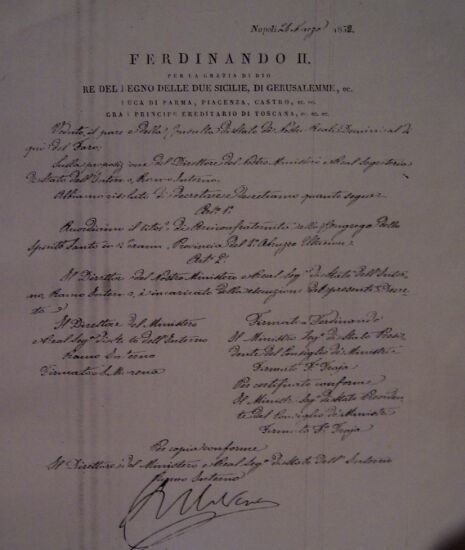 Napoli 26 Marzo 1852.
FERDINANDO II.
PER LA GRAZIA DI DIO
RE DEL REGNO DELLE DUE SICILIE, DI GERUSALEMME, ec.
DUCA DI PARMA, PIACENZA, CASTRO, ec. ec.
GRAN PRINCIPE EREDITARIO DI TOSCANA, ec. ec. ec.
Veduto il parere della Consulta di Stato de' Reali Domini al di
quà del Faro;
Sulla proposizione del Direttore del Nostro Ministero e Real Segreteria
di Stato dell'Interno, Ramo Interno.
Abbiamo risoluto di decretare e decretiamo quanto segue
Art.° 1.°
il titolo di Arciconfraternita alla Congrega dello
Spirito Santo in Teramo, Provincia del 1.° Abruzzo Ulteriore
Art. 2.°
Il Direttore del Nostro Ministero e Real Seg.ª di Stato dell'Inter
no, Ramo Interno, è incaricato della esecuzione del presente Decre
to
Il Direttore del Ministero
e Real Seg.ª di Stato dell'Interno
Ramo Interno
Firmato
Firmato Ferdinando
Il Ministro Seg.° di Stato Presi
dente del Consiglio de' Ministri
Firmato F.° Troja
Per certificato conforme
Il Ministro Seg.° di Stato Presiden
te del Consiglio de' Ministri
Firmato F.° Troja
Per copia conforme
Il Direttore del Ministero e Real Seg.ª di Stato dell'Interno
Ramo Interno